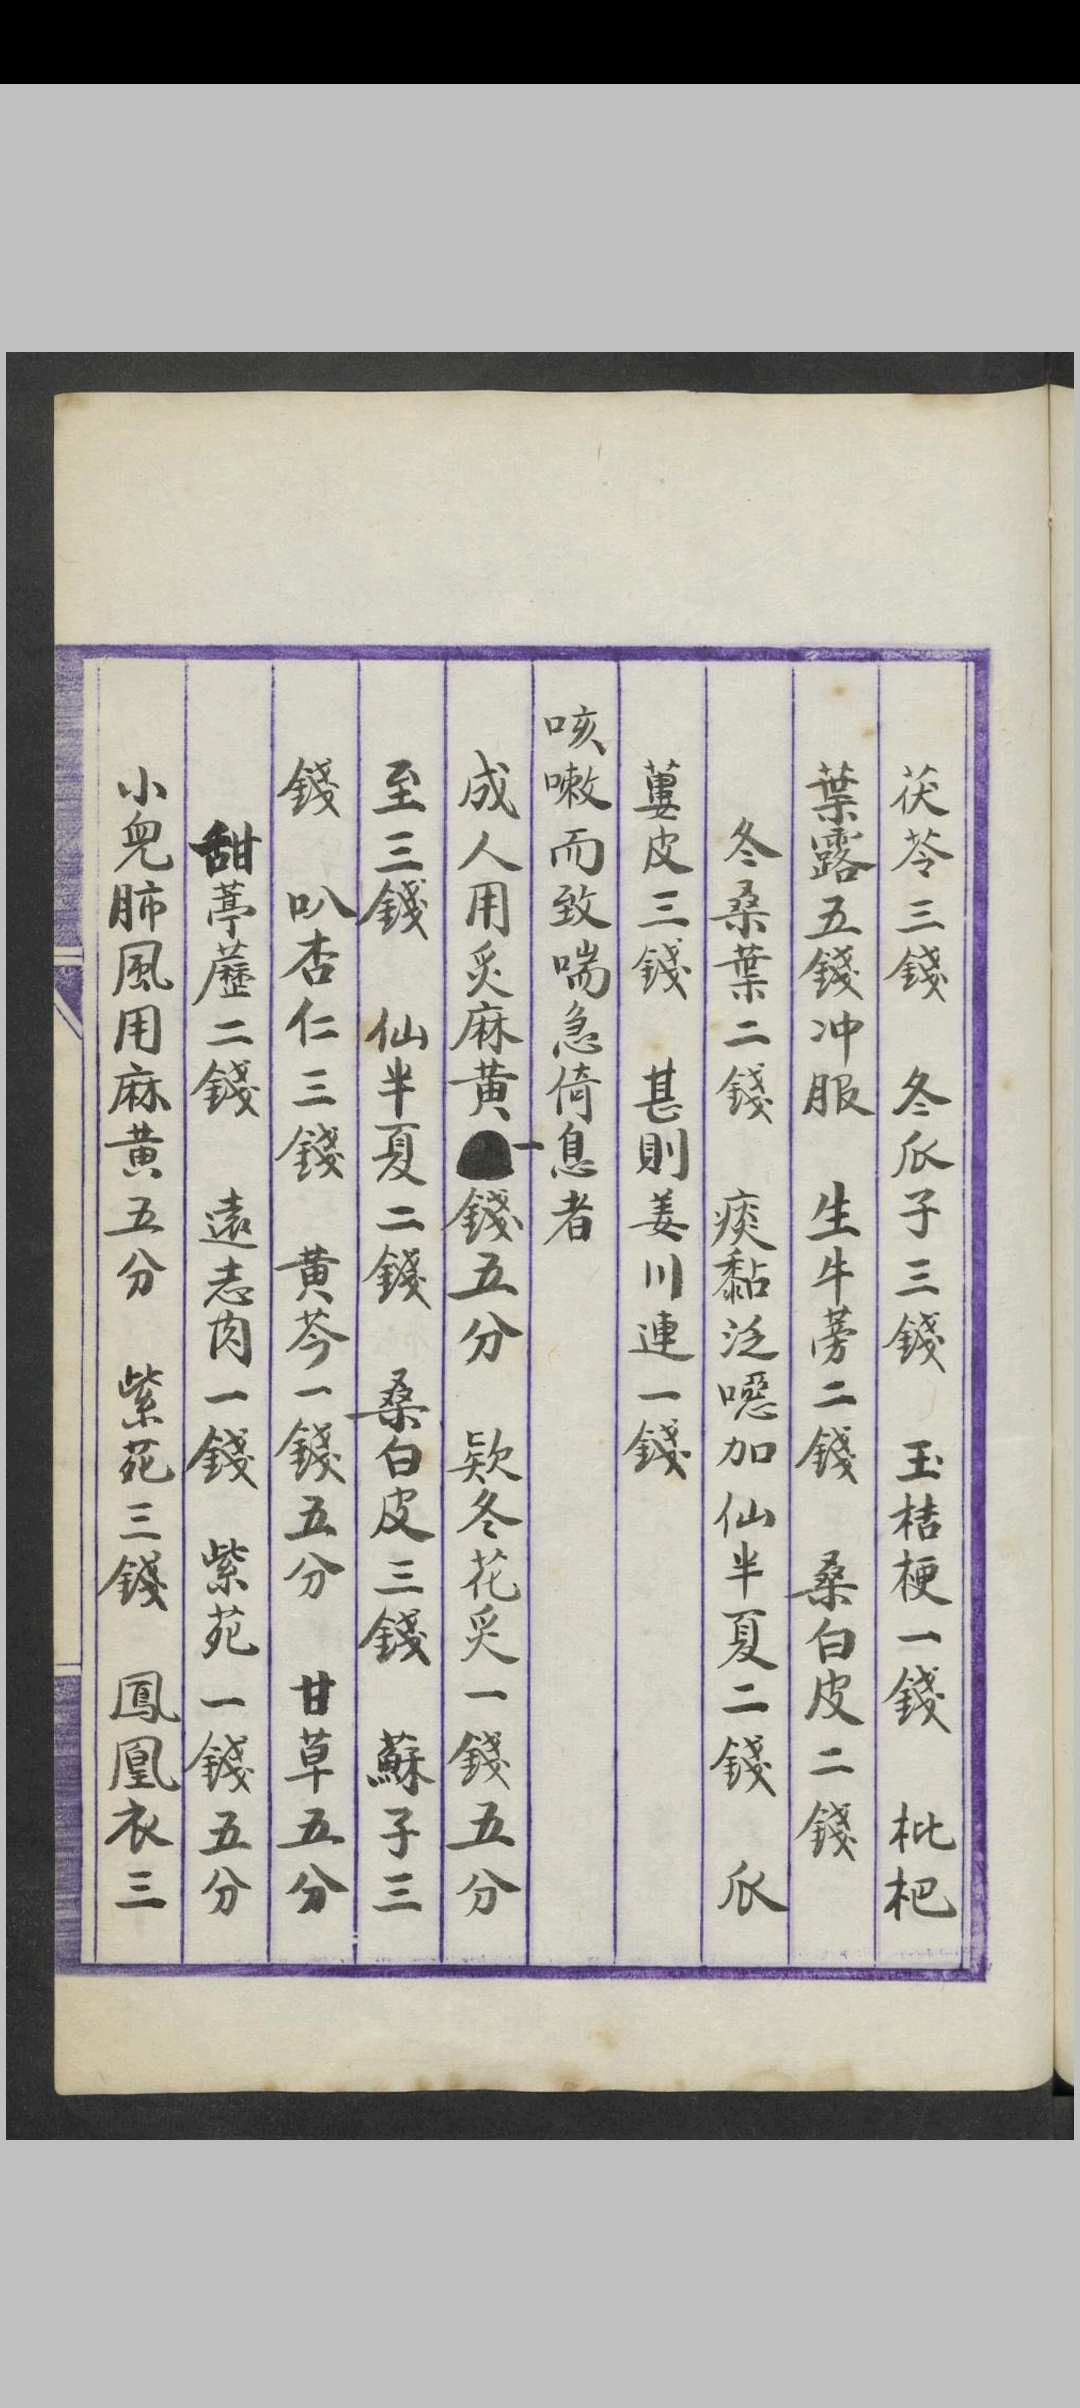 茯苓三錢　冬瓜子三錢　玉桔梗一錢　枇杷
葉露五錢冲服　生牛蒡二錢　桑白皮二錢
冬桑葉二錢　痰黏泛噁加仙半夏二錢　瓜
蔞皮三錢　甚則姜川連一錢
咳嗽而致喘急倚息者
成人用炙麻黃一錢五分　欵冬花炙一錢五分
至三錢　仙半夏二錢　桑白皮三錢　蘇子三
錢　叭杏仁三錢　黄芩一錢五分　甘草五分
甜葶藶二錢　遠志肉一錢　紫苑一錢五分
小兒肺風用麻黄五分　紫苑三錢　鳳凰衣三